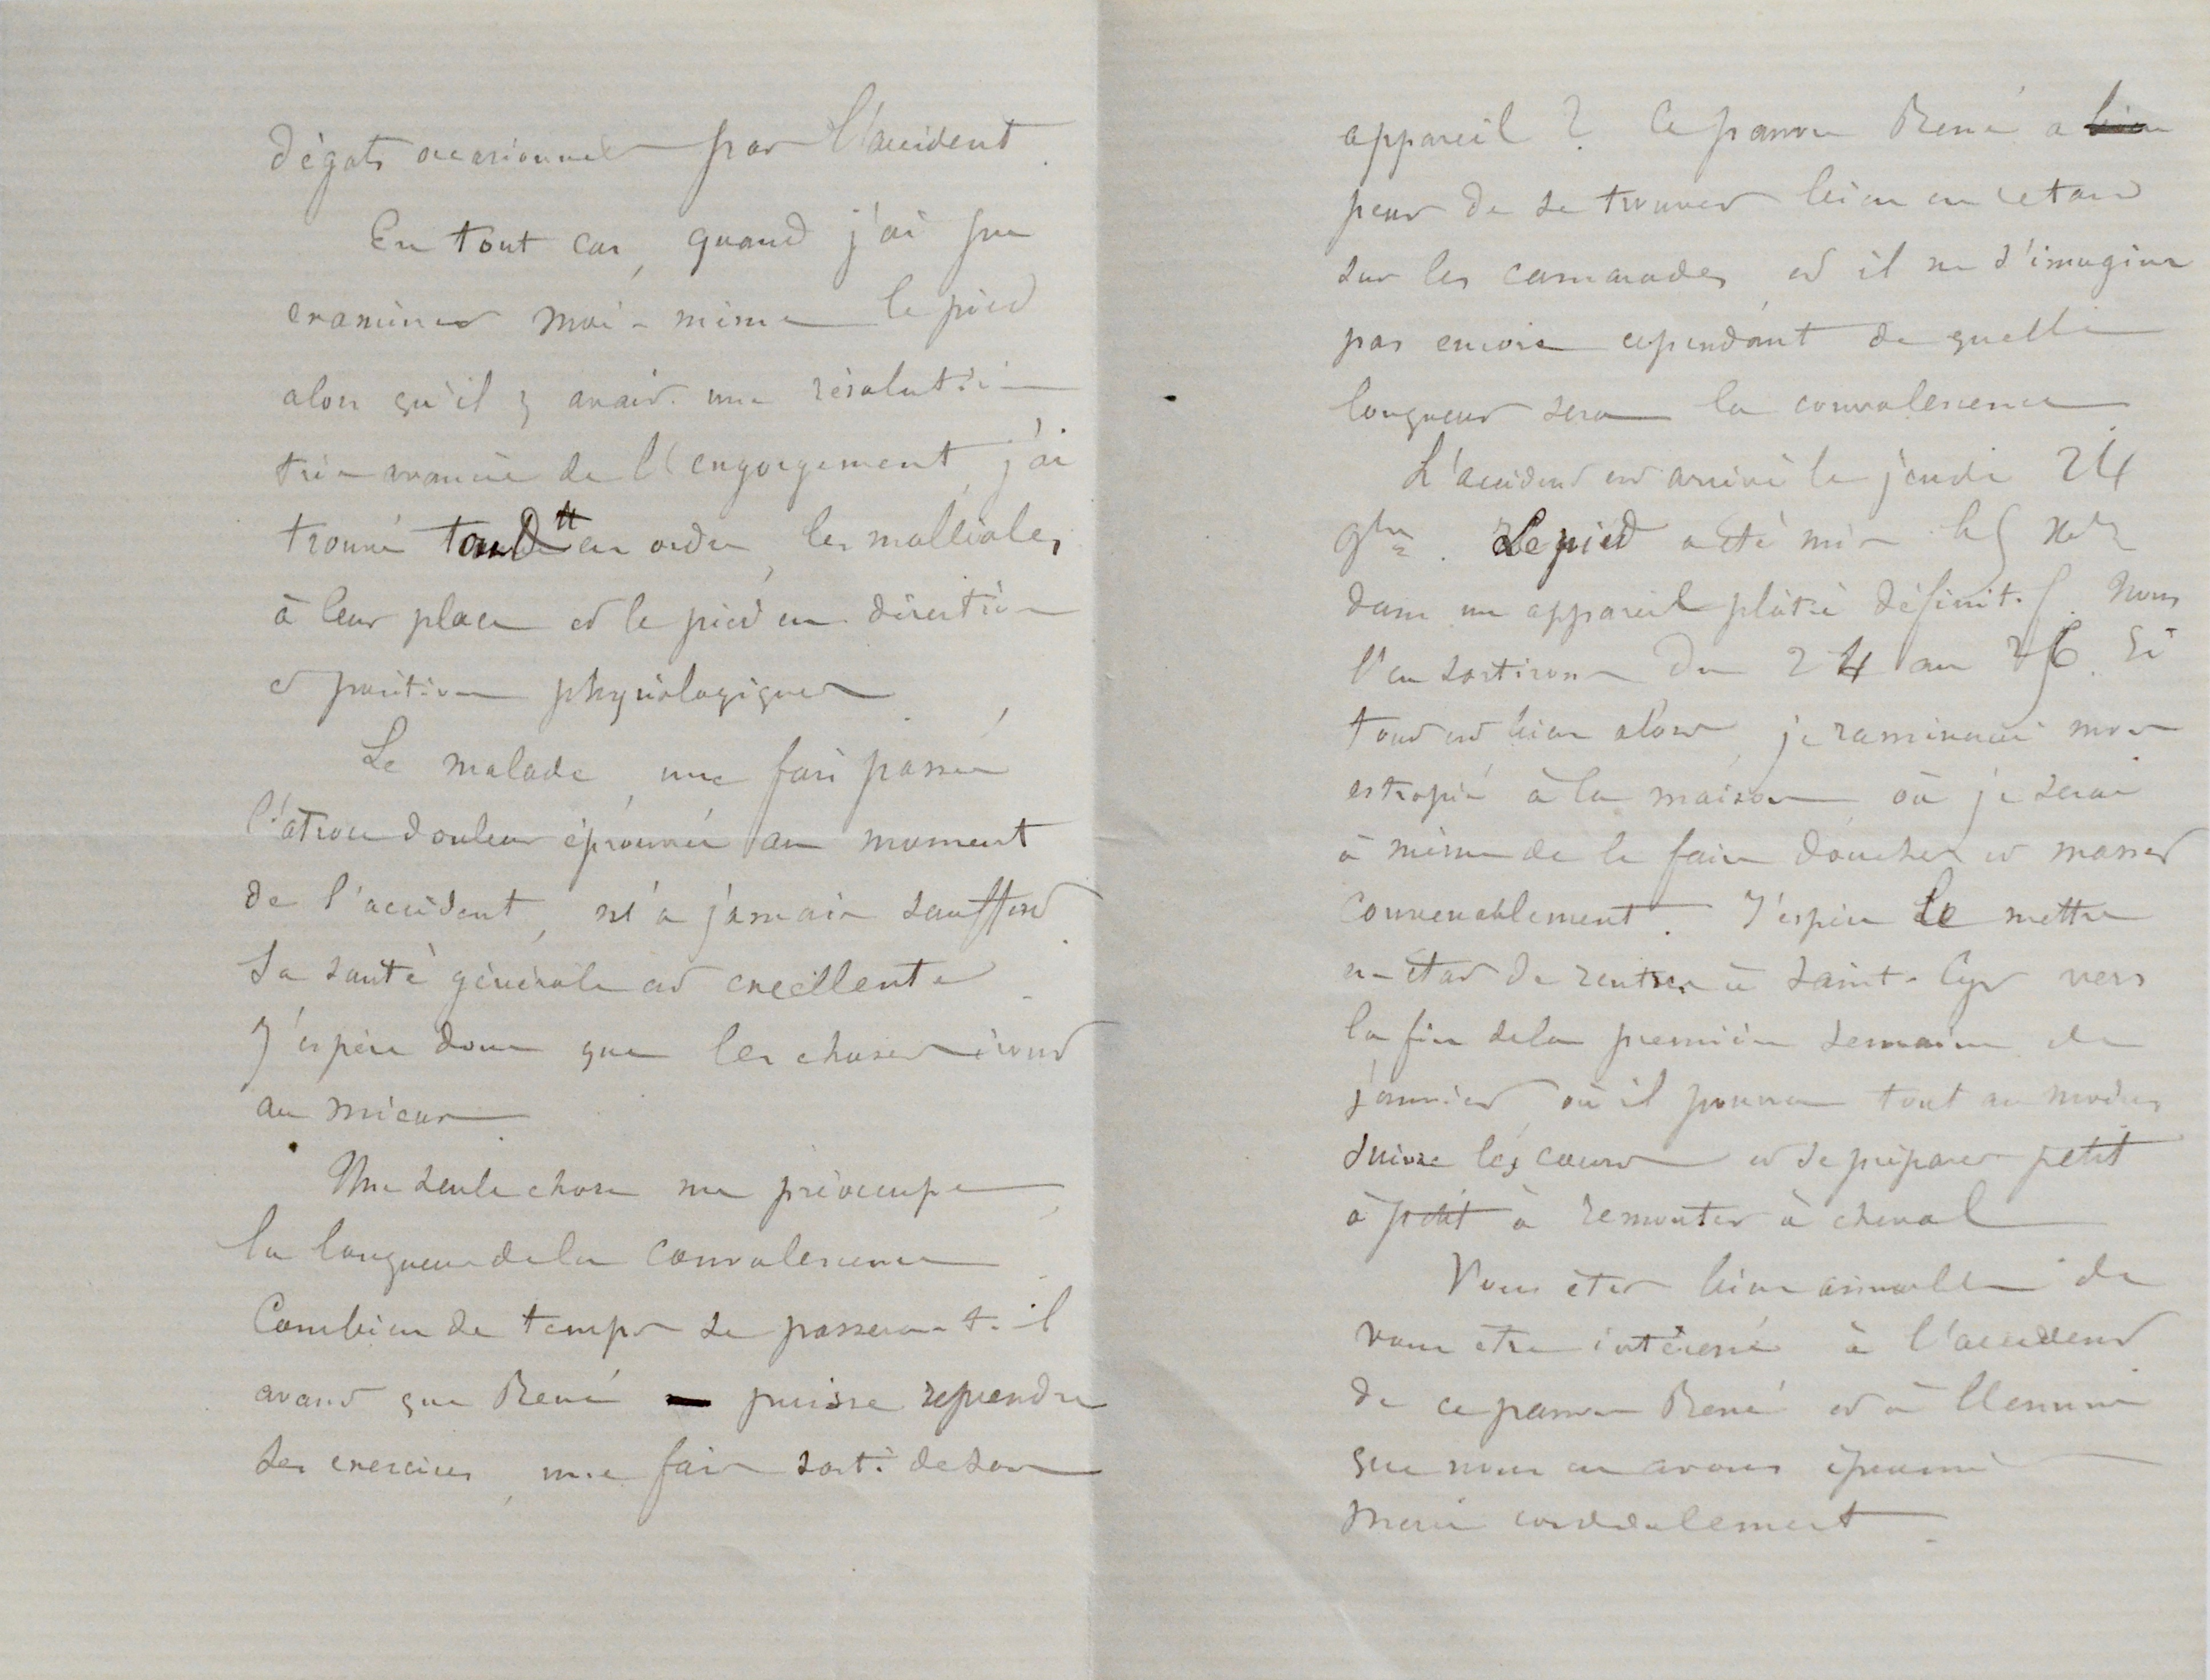 dégats occasionnés par l'accident.
En tout cas, quand j'ai pu
examiner moi-même le pied
alors qu'il y avait une résolution
très avancée de l'engorgement, j'ai
trouvé tout en ordre, les malléoles
à leur place et le pied en direction
et position physiologiques.
Le malade, une fois passée
l'atroce douleur éprouvée au moment
de l'accident, n'a jamais souffert.
Sa santé générale est excellente.
J'espère donc que les choses iront
au mieux.
Une seule chose me préoccupe,
la longueur de la convalescence.
Combien de temps se passera-t-il
avant que René puisse reprendre
ses exercices, une fois sorti de son
appareil ? Ce pauvre René a bien
peur de se trouver bien en retard
sur les camarades, et il ne s'imagine
pas encore cependant de quelle
longueur sera la convalescence.
L'accident est arrivé le jeudi 24
9bre. Le pied a été mis le 5 Xbre
dans un appareil plâtré définitif. Nous
l'en sortirons du 24 au 26. Si
tout est bien alors, je ramènerai mon
estropié à la maison où je serai
à même de le faire doucher et masser
convenablement. J'espère le mettre
en état de rentrer à Saint-Cyr vers
la fin de la première semaine de
janvier, où il pourra tout au moins
suivre les cours et se préparer petit
à petit à remonter à cheval.
Vous êtes bien aimable de
vous être intéressé à l'accident
de ce pauvre René et à l'ennui
que nous en avons éprouvé.
Merci cordialement.